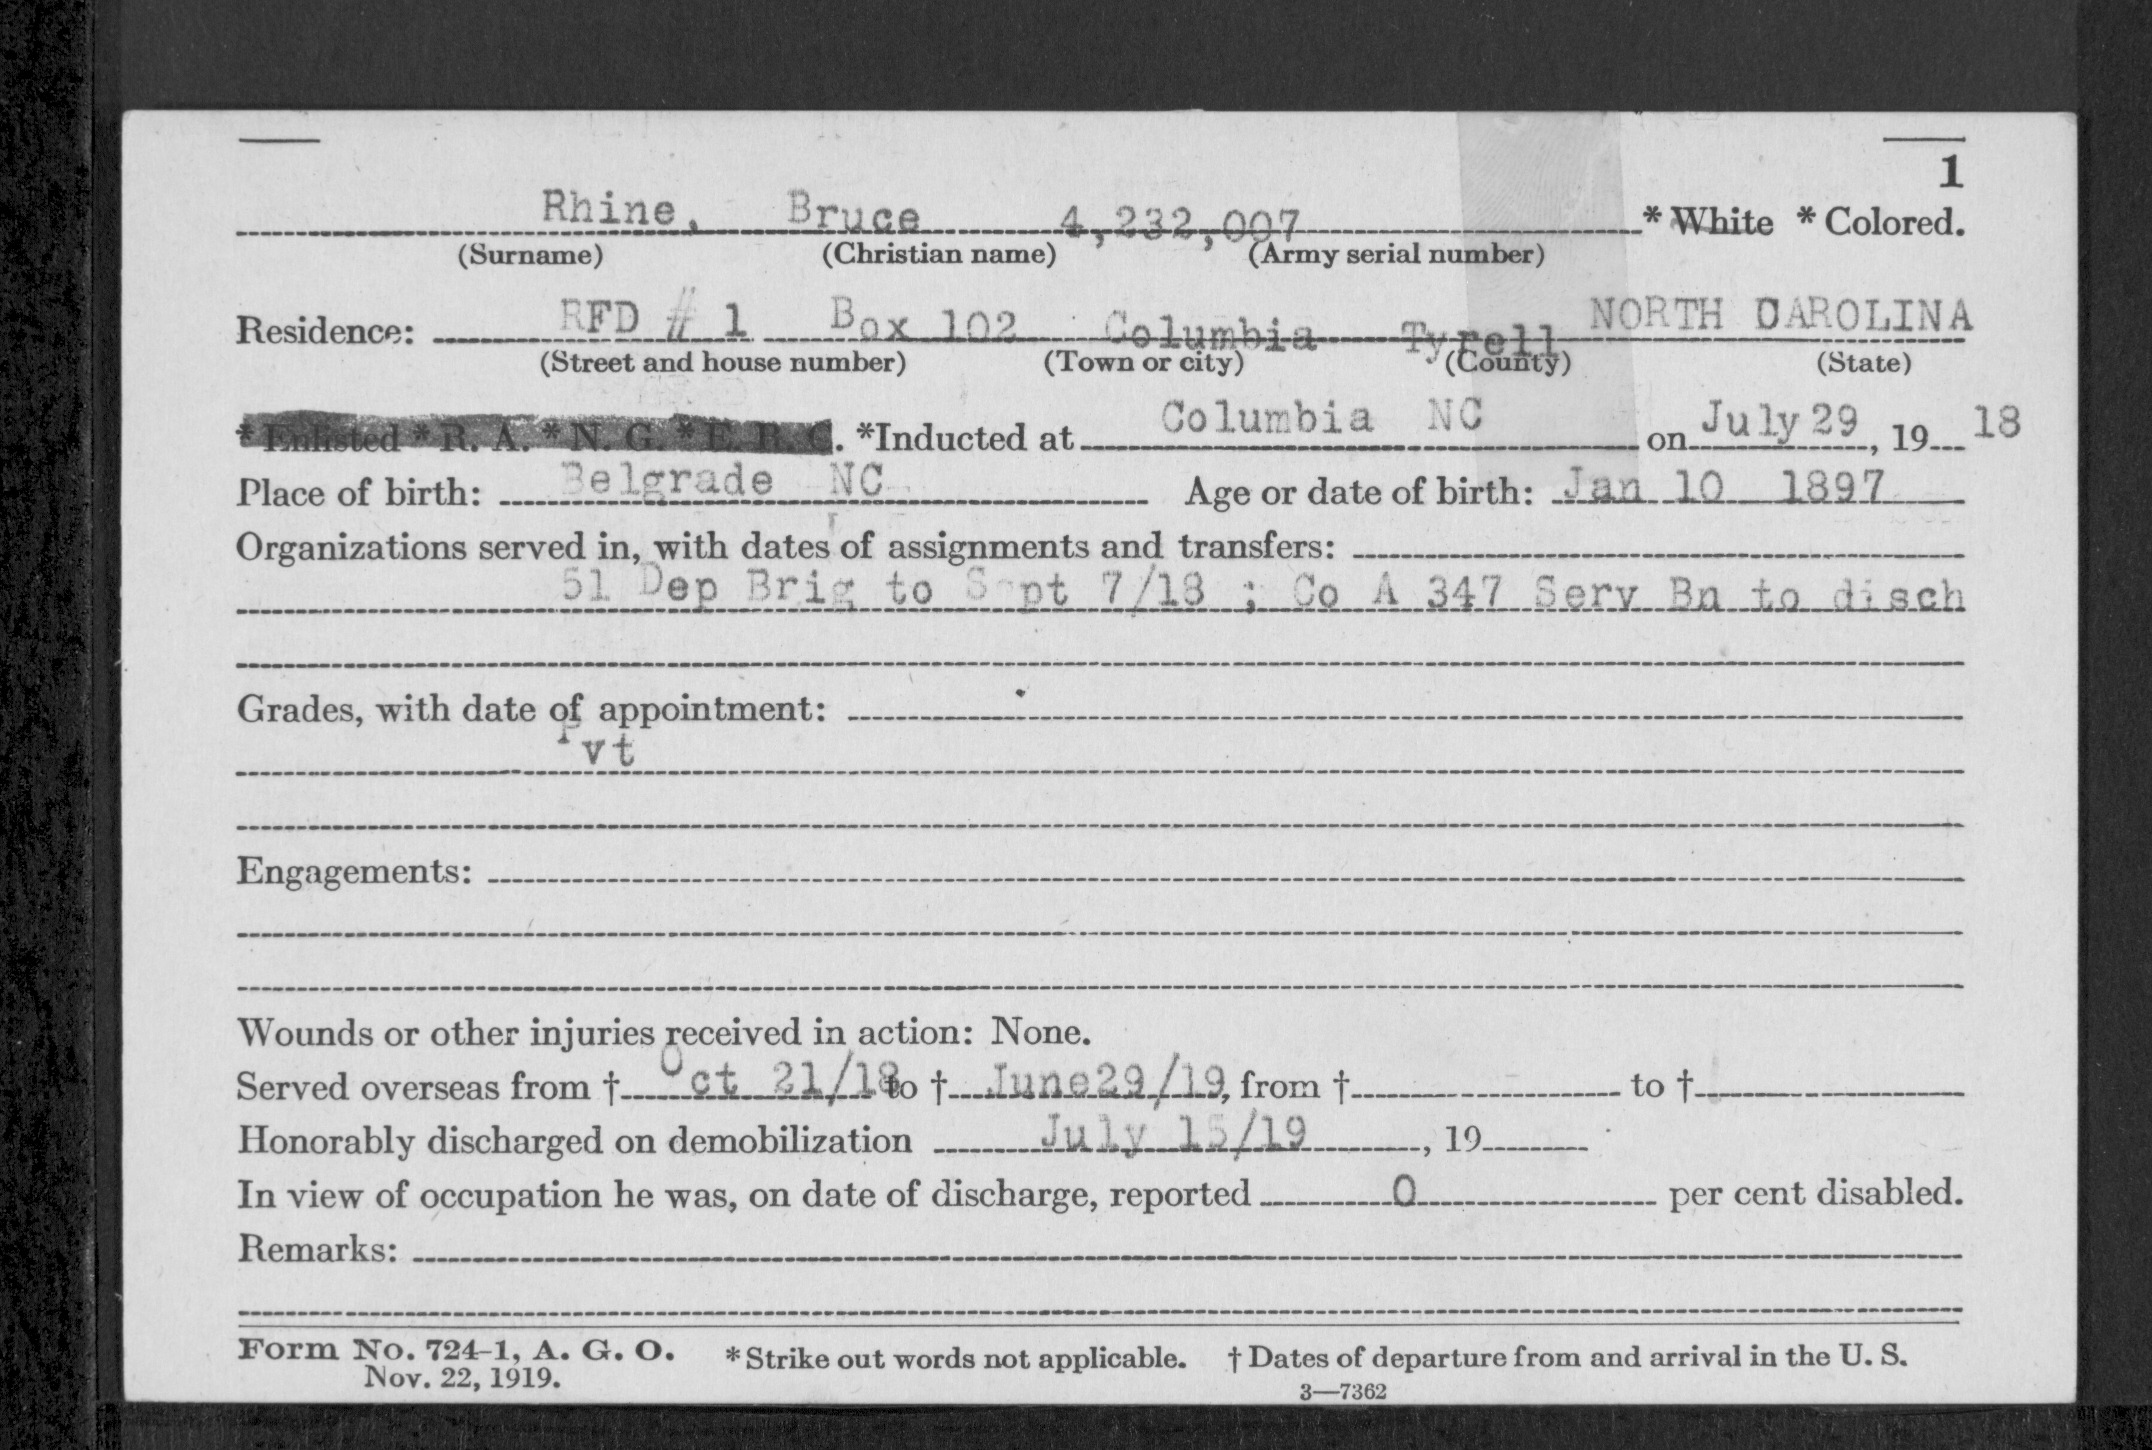 1
Rhine, Bruce 4,232,007 * White * Colored.
(Surname) (Christian name) (Army serial number)
Residence: RFD # 1 Box 102 Columbia Tyrell NORTH CAROLINA
(Street and house number) (Town or city) (County) (State)
* Enlisted * R. A. * N. G. * E. R. C. *Inducted at Columbia NC on July 29, 19 18
Place of birth: Belgrade NC Age or date of birth: Jan 10 1897
Organizations served in, with dates of assignments and transfers:
51 Dep Brig to Sept 7/18 ; Co A 347 Serv Bn to disch
Grades, with date of appointment:
Pvt
Engagements:
Wounds or other injuries received in action: None.
Served overseas from † Oct 21/18 to † June 29/19, from † to †
Honorably discharged on demobilization July 15/19, 19
In view of occupation he was, on date of discharge, reported 0 per cent disabled.
Remarks:
Form No. 724-1, A. G. O. * Strike out words not applicable. † Dates of departure from and arrival in the U. S.
Nov. 22, 1919. 3—7362